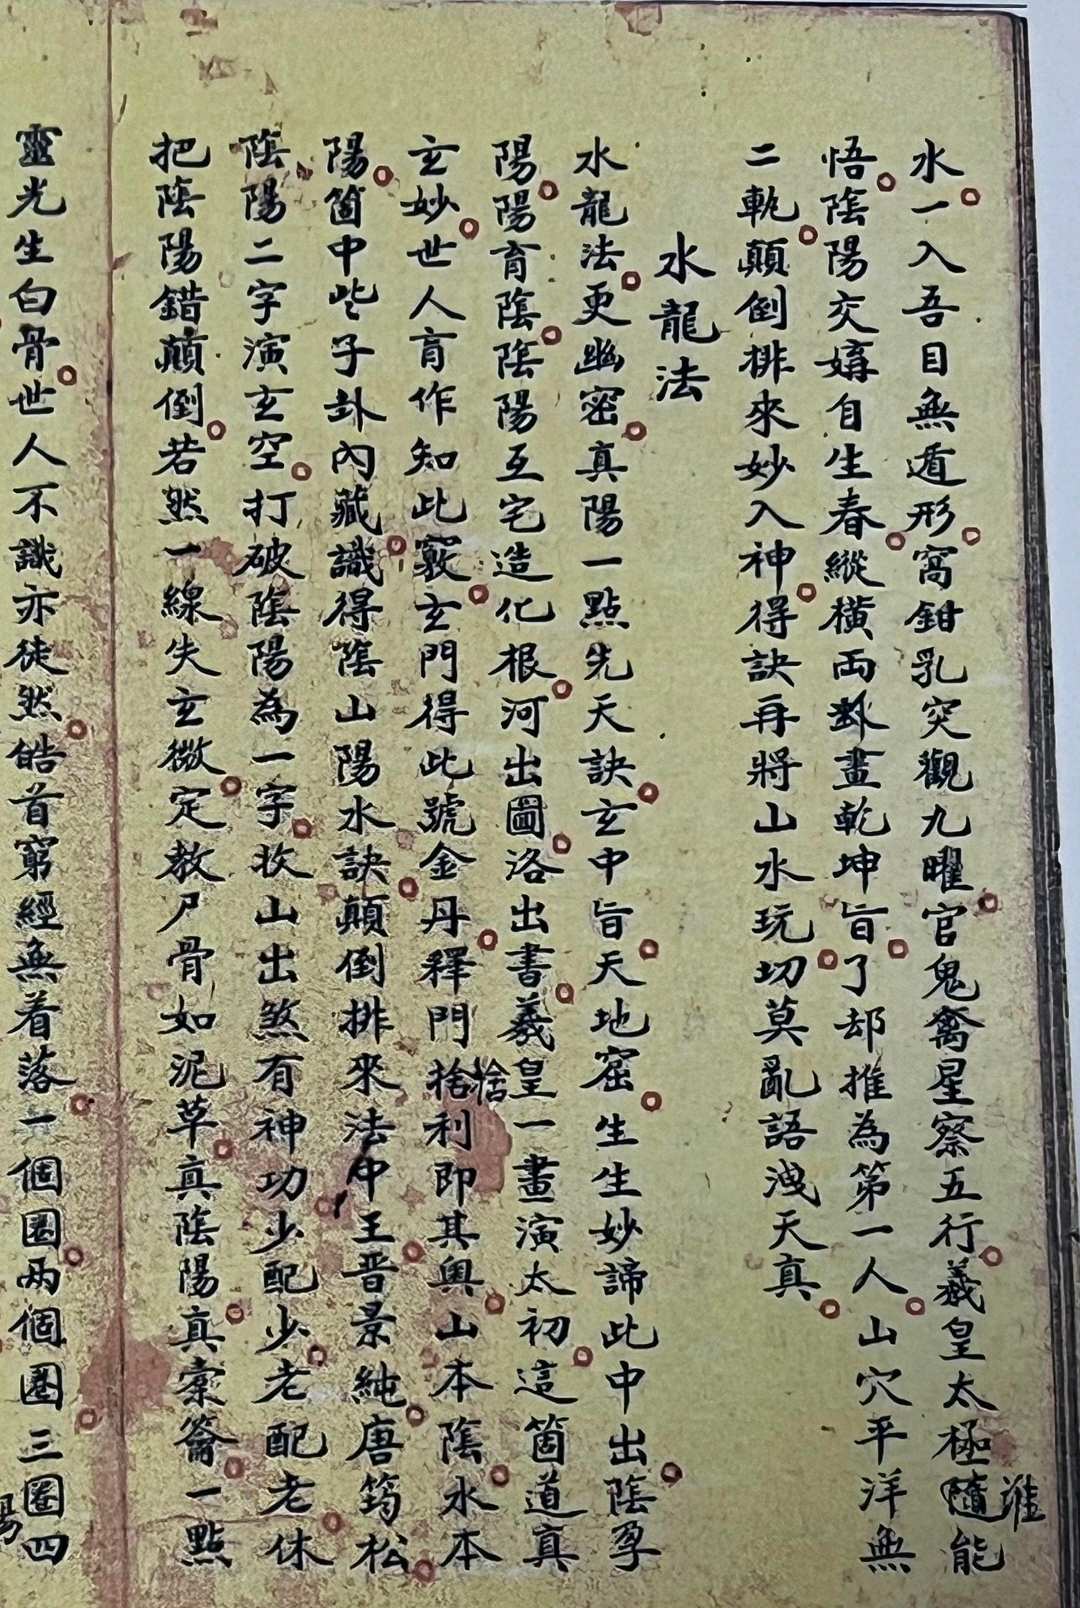 水一入吾目無遁形窩鉗乳突觀九曜官鬼禽星察五行羲皇太極隨能
誰
悟陰陽交媾自生春縱橫兩卦畫乾坤旨了却推為第一人山穴平洋無
二軌顛倒排來妙入神得訣再將山水玩切莫亂語洩天真
水龍法
水龍法更幽密真陽一點先天訣玄中旨天地窟生生妙諦此中出陰孕
陽陽育陰陰陽互宅造化根河出圖洛出書羲皇一畫演太初這箇道真
玄妙世人肓作知此竅玄門得此號金丹釋門捨利即其奧山本陰水本
捨
陽箇中些子卦內藏識得陰山陽水訣顛倒排來法中王晋景純唐筠松
陰陽二字演玄空打破陰陽為一字收山出煞有神功少配少老配老休
把陰陽錯顛倒若然一線失玄微定教尸骨如泥草真陰陽真槖籥一點
靈光生白骨世人不識亦徒然皓首窮經無着落一個圈兩個圈三圈四